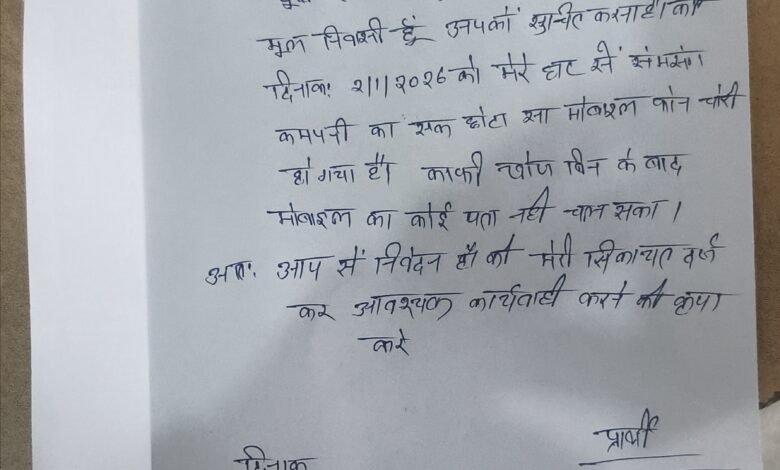 मूल निवासी हूँ आपको सुचित करना है। की
दिनाक: 2/1/2026 को मेरे घर सें संमसंग
कमपनी का एक छोटा सा मोबाइल फोन चोरी
हो गया है। काफी खोज बिन के बाद
मोबाइल का कोई पता नही चल सका।
अत: आप सें निवेदन है। की मेरी सिकायत दर्ज
कर आवश्यक कार्यवाही करने की कृपा
करे
प्रार्थी
दिनाक